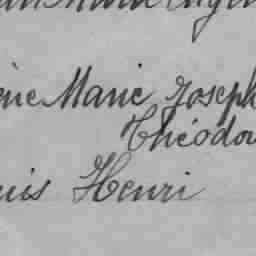 ène Marie Joseph
Théodo
uis Henri